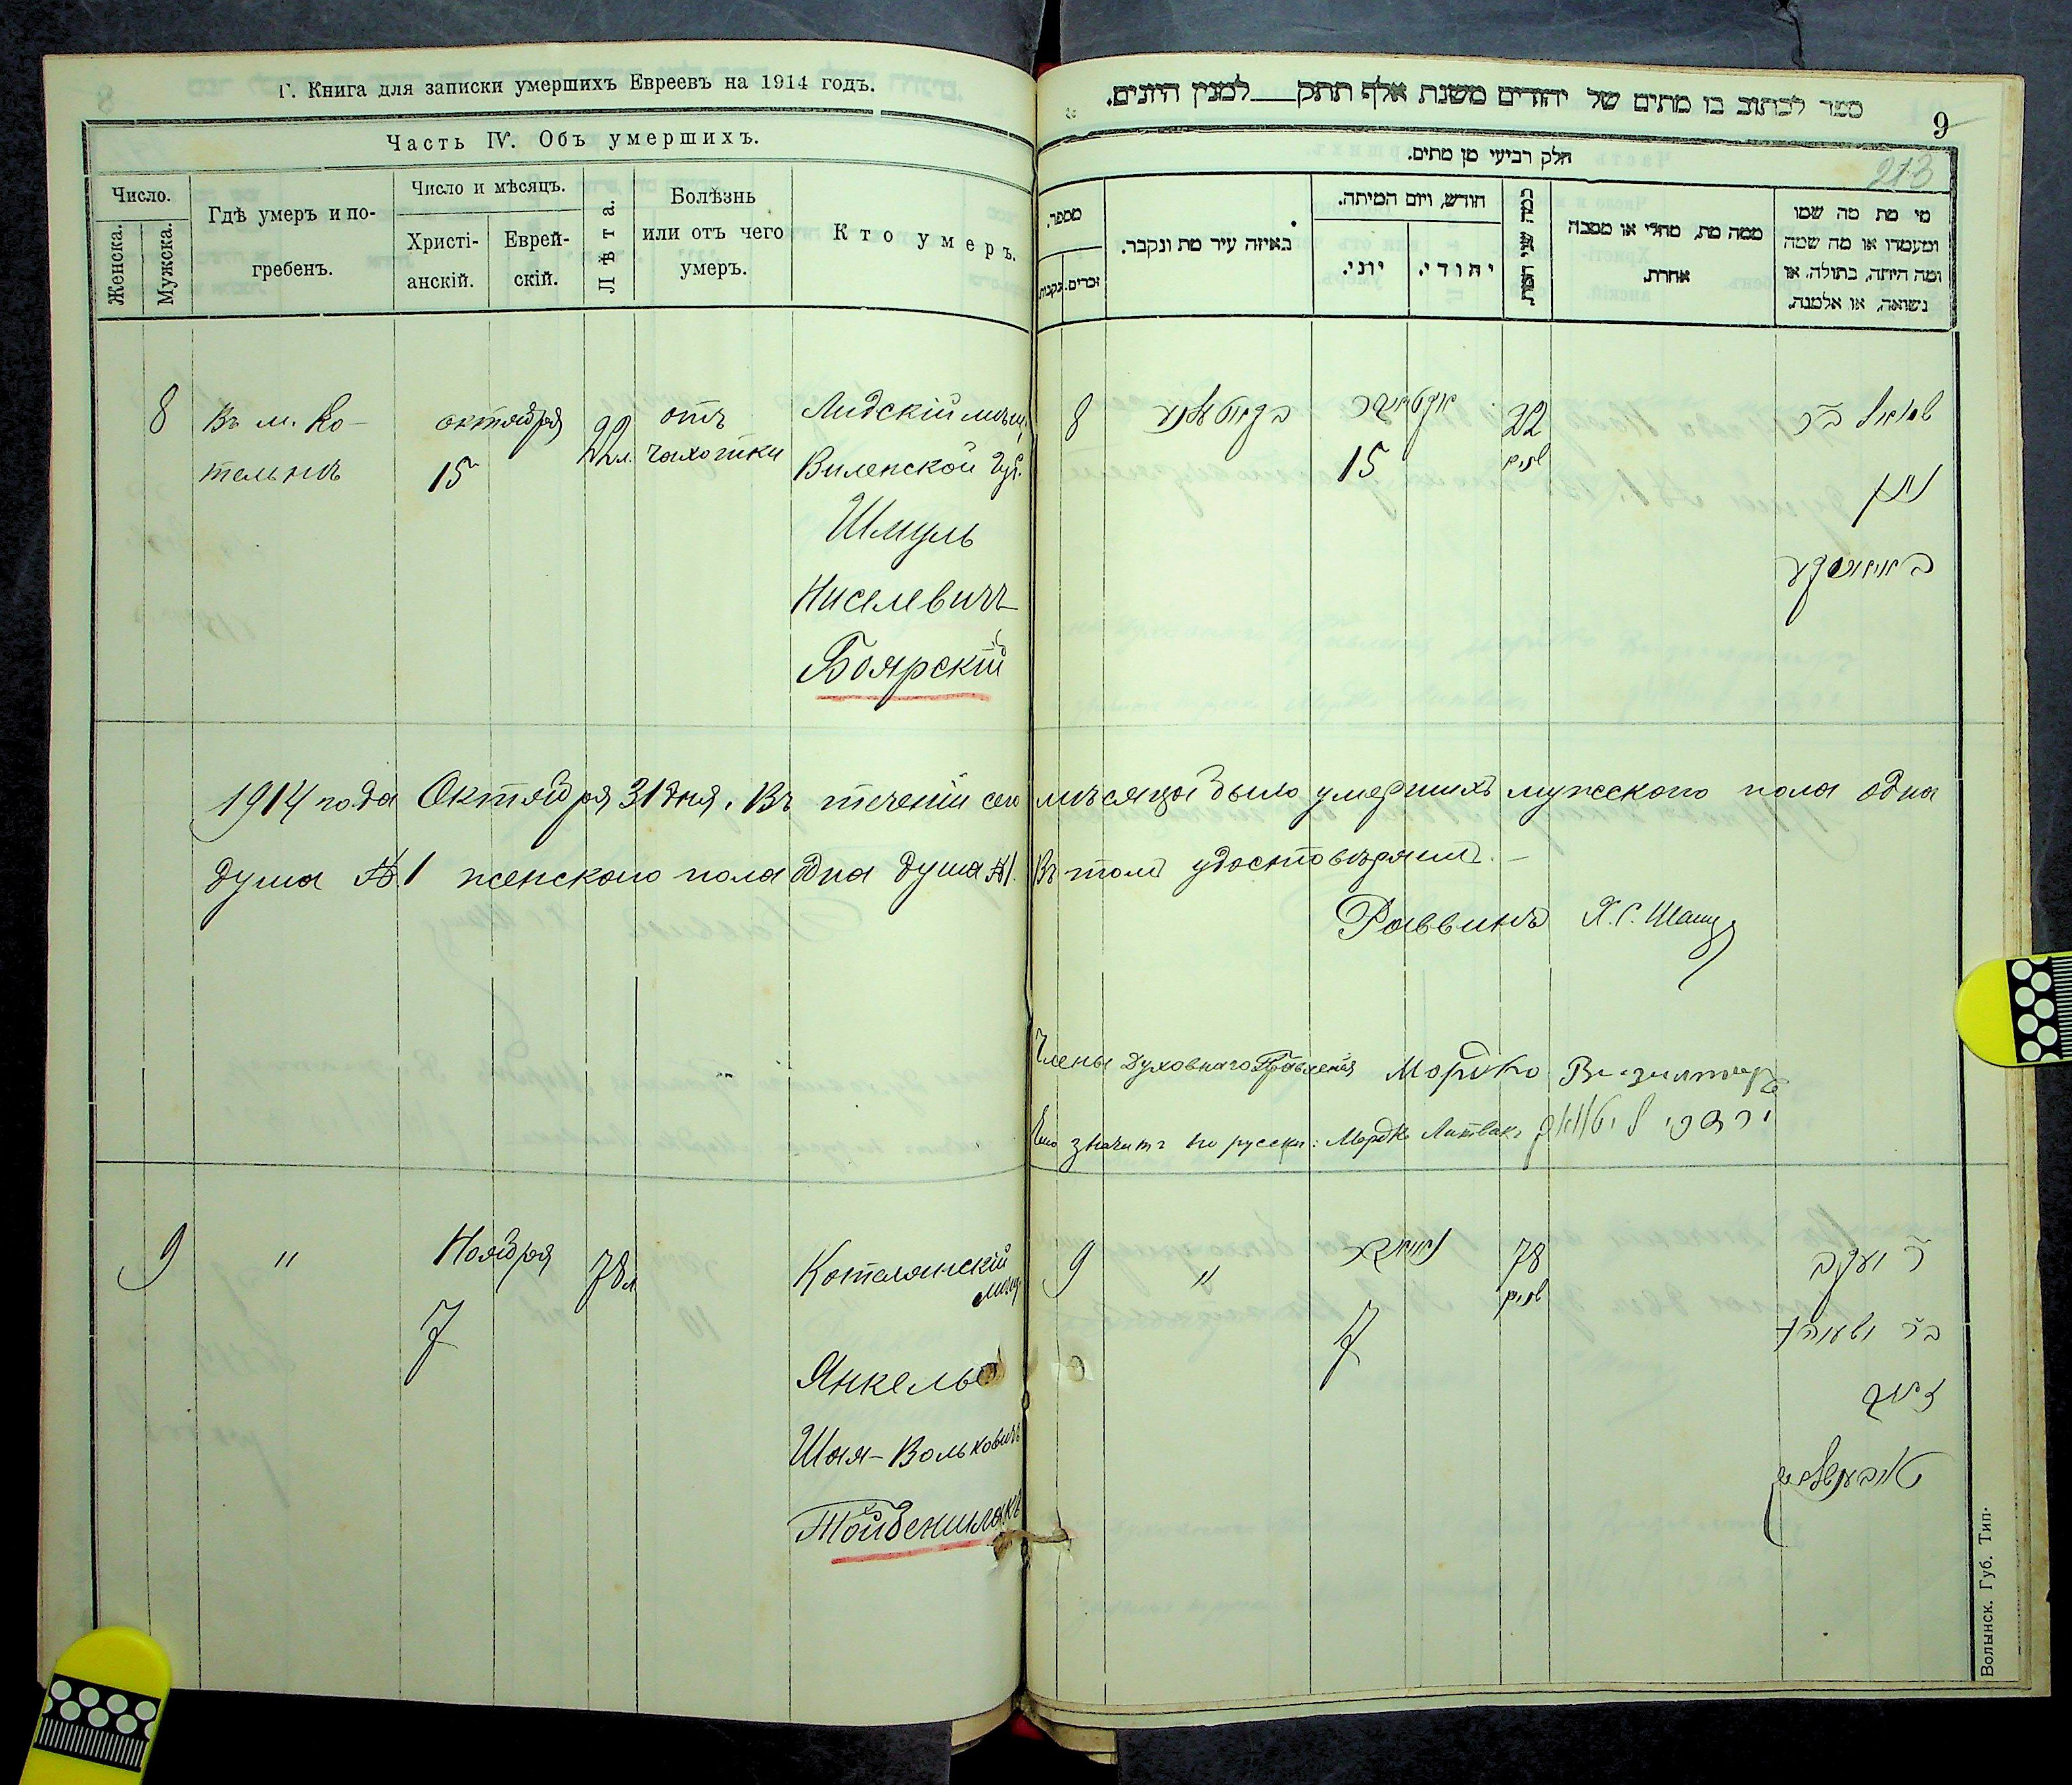 Г. Книга для записки умершихъ Евреевъ на 1914 годъ.
Часть IV. Объ умершихъ.
Число.
Женска.
Мужска.
Гдѣ умеръ и по-
гребенъ.
Число и мѣсяцъ.
Христі-
анскій.
Еврей-
скій.
Лѣта.
Болѣзнь
или отъ чего
умеръ.
Кто умеръ.
8
Въ м. Ко-
тельнѣ
октября
15
22 л.
отъ
чахотки
Лидскій мѣщ.
Виленской губ.
Шмуль
Ниселевичъ
Боярскій
1914 года Октября 31 дня. Въ теченіи сего мѣсяца было умершихъ мужского пола одна
душа №1 женского пола одна душа №1. Въ томъ удостовѣряемъ.
Раввинъ Х. С.
Члены Духовнаго Правленія Мордко
значитъ по русски: Мордко Литвакъ
9
"
Ноября
7
78 л
Котелянскій
мѣщ.
Янкель
Шая-Вольковичъ
Тойбеншлакъ
ספר לכתוב בו מתים של יהודים משנת אלף תתק למנין היונים.
9
213
חלק רביעי מן מתים.
מספר.
נקבות.
זכרים.
באיזה עיר מת ונקבר.
חודש, ויום המיתה.
יוני.
יהודי.
כמה שני המת
ממה מת, מחלי או מסבה
אחרת.
מי מת מה שמו
ומעמדו או מה שמה
ומה היתה, בתולה, או
נשואה, או אלמנה.
8
אקטאבר
15
22
שנים
שמואל בר
ניסן
באיארסקי
9
"
נאיאבר
7
78
שנים
ר יעקב
בר ישעיה
וואלף
טויבענשלאק
Волынск. Губ. Тип.